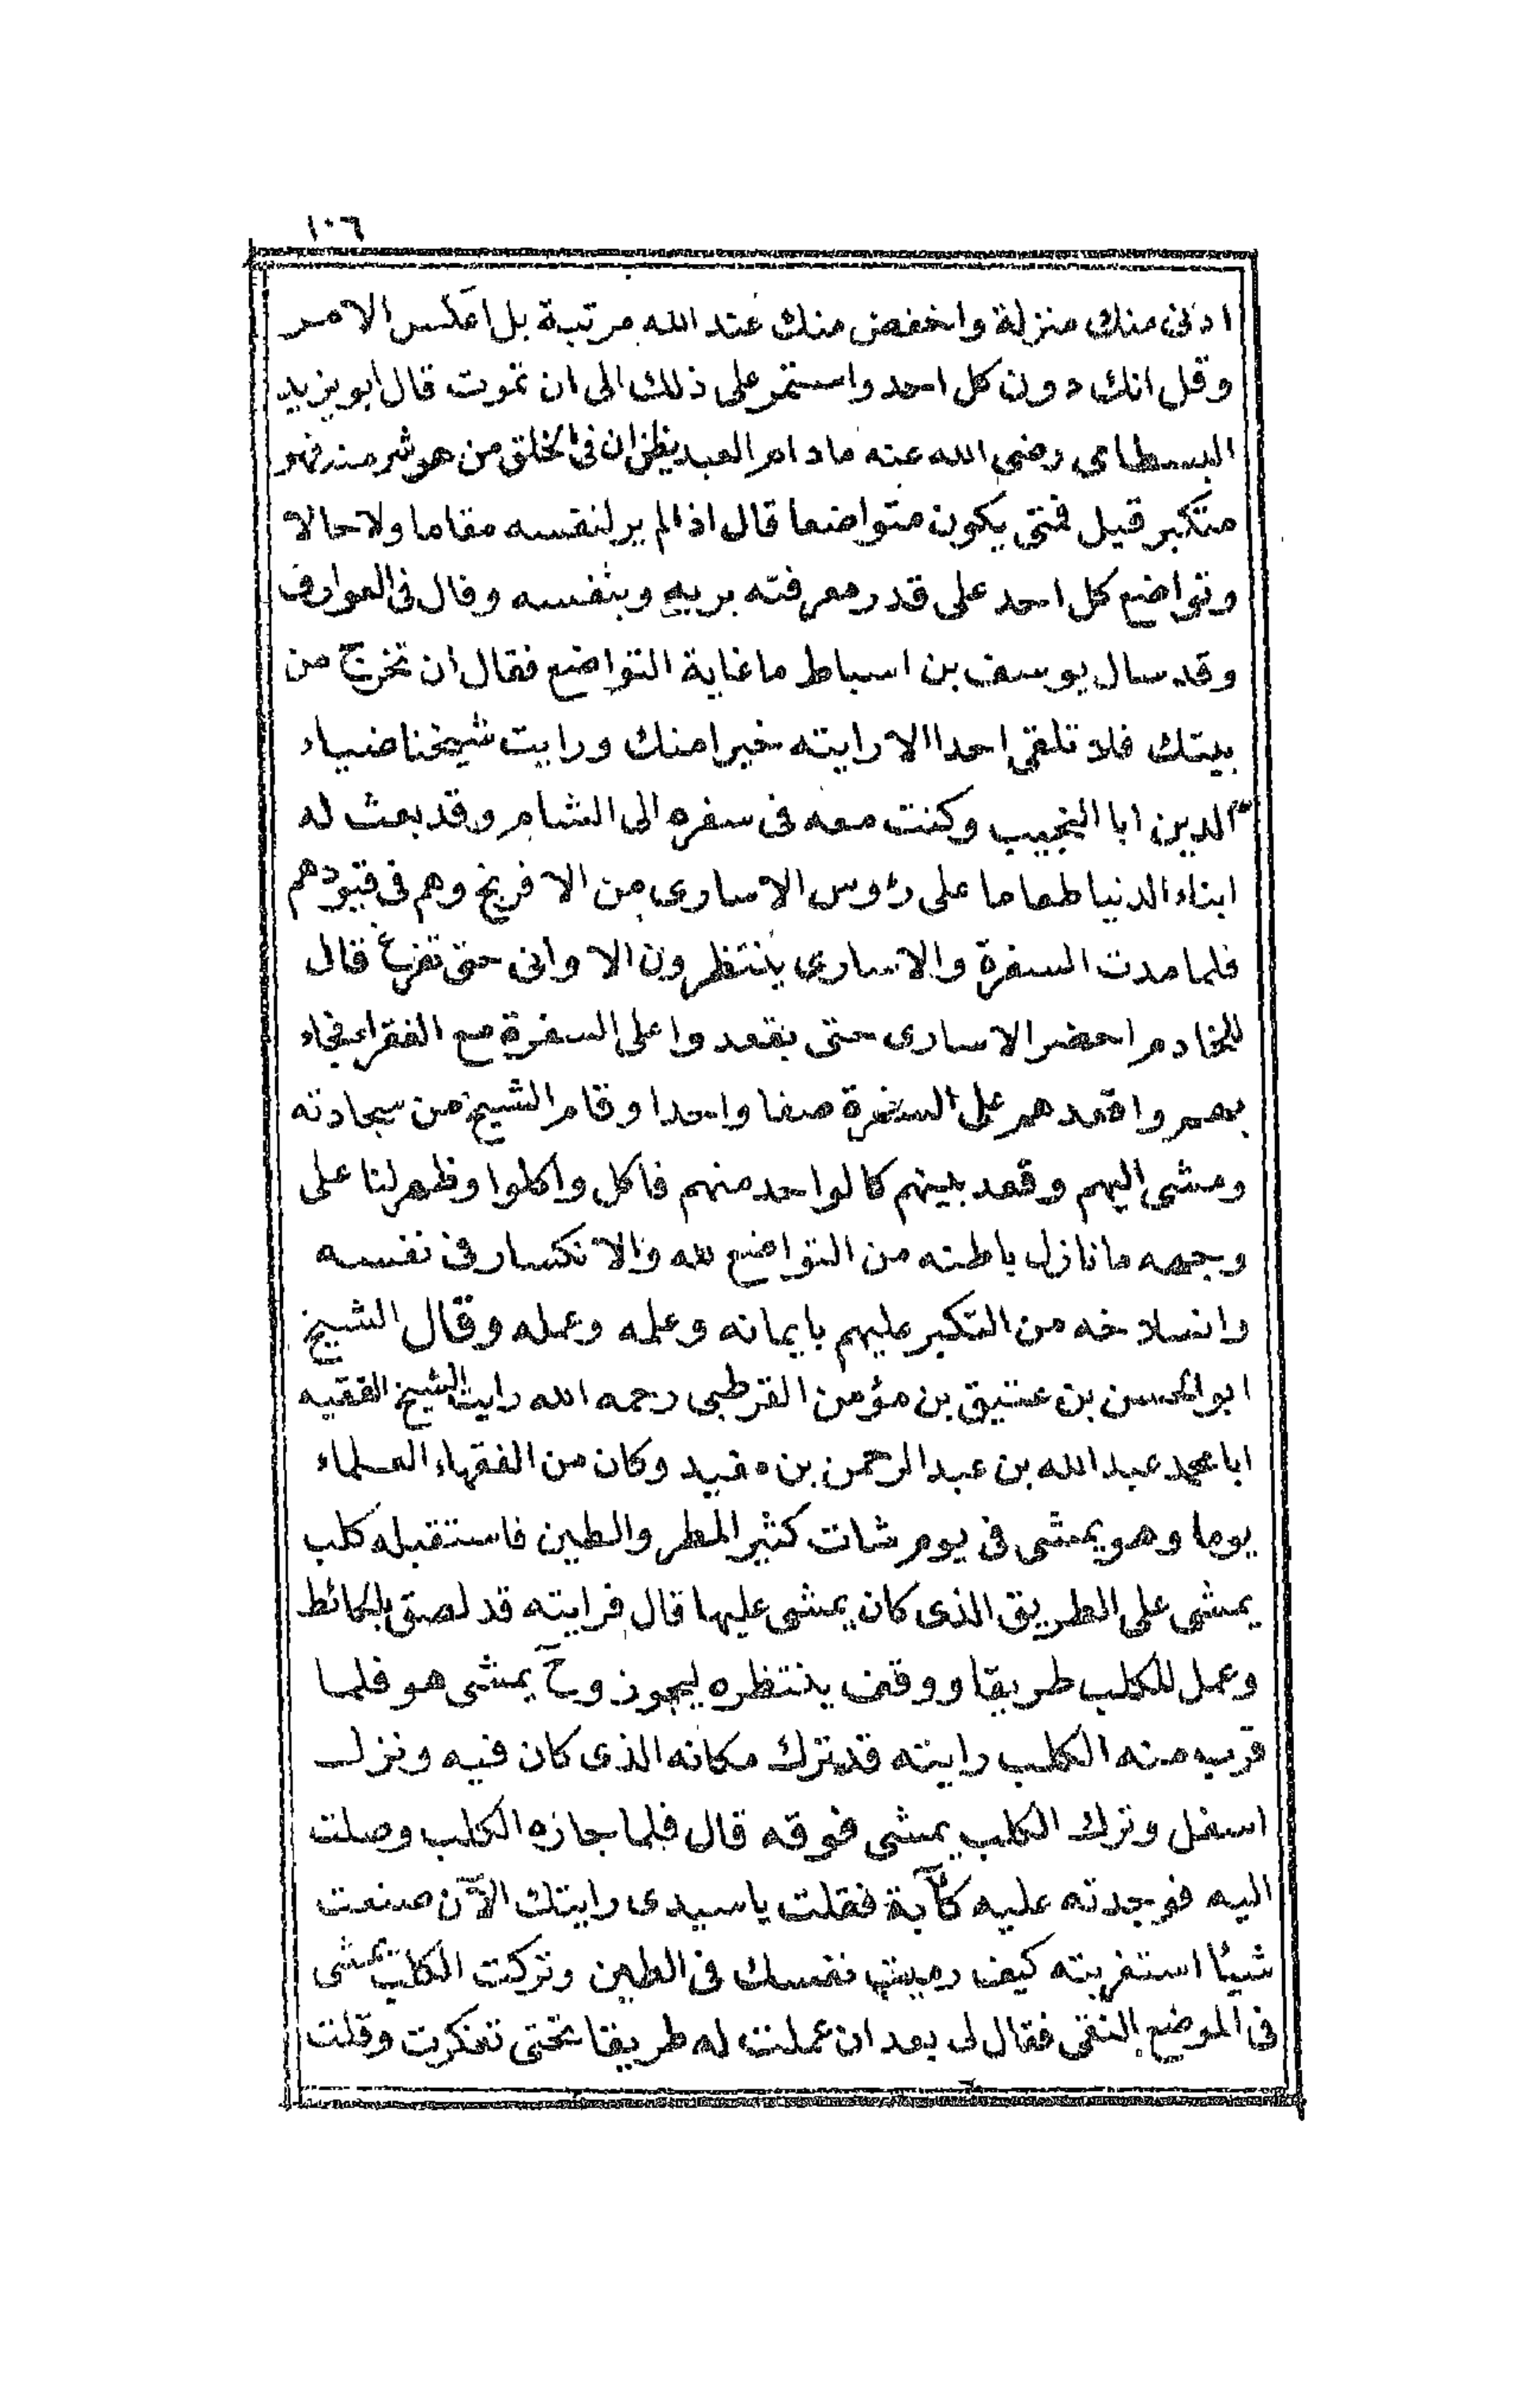 ١٠٦
ادنى منك منزلة واخفض منك عند الله مرتبة بل اعكس الامر
وقل انك دون كل احد واستمر على ذلك الى ان تموت قال ابو يزيد
البسطامى رضى الله عنه مادام العبد يظن ان فى الخلق من هو شر منه فهو
متكبر قيل فمتى يكون متواضعا قال اذا لم ير لنفسه مقاما ولا حالا
وتواضع كل احد على قدر معرفته بربه وبنفسه وقال فى العوارف
وقد سال يوسف بن اسباط ما غاية التواضع فقال ان تخرج من
بيتك فلا تلقى احدا الا رايته خيرا منك ورايت شيخنا ضياء
الدين ابا النجيب وكنت معه فى سفره الى الشام وقد بعث له
ابناء الدنيا طعاما على رؤوس الاسارى من الافرنج وهم فى قيودهم
فلما مدت السفرة والاسارى ينتظرون الاوانى حتى تفرغ قال
للخادم احضر الاسارى حتى يقعدوا على السفرة مع الفقراء فجاء
بهم واقعدهم على السفرة صفا واحدا وقام الشيخ من سجادته
ومشى اليهم وقعد بينهم كالواحد منهم فاكل واكلوا وظهر لنا على
وجهه ما نازل باطنه من التواضع لله والانكسار فى نفسه
وانسلاخه من التكبر عليهم بايمانه وعلمه وعمله وقال الشيخ
ابو الحسن بن عتيق بن مؤمن القرطبى رحمه الله رايت الشيخ الفقيه
ابا محمد عبد الله بن عبد الرحمن بن مفيد وكان من الفقهاء العلماء
يوما وهو يمشى فى يوم شات كثير المطر والطين فاستقبله كلب
يمشى على الطريق الذى كان يمشى عليها قال فرايته قد لصق بالحائط
وعمل للكلب طريقا ووقف ينتظره ليجوز وحٓ يمشى هو فلما
قرب منه الكلب رايته قد ترك مكانه الذى كان فيه ونزل
اسفل وترك الكلب يمشى فوقه قال فلما جازه الكلب وصلت
اليه فوجدته عليه كآبة فقلت ياسيدى رايتك الآن صنعت
شيئا استغربته كيف رميت نفسك فى الطين وتركت الكلب يمشى
فى الموضع النقى فقال لى بعد ان عملت له طريقا تحتى تفكرت وقلت